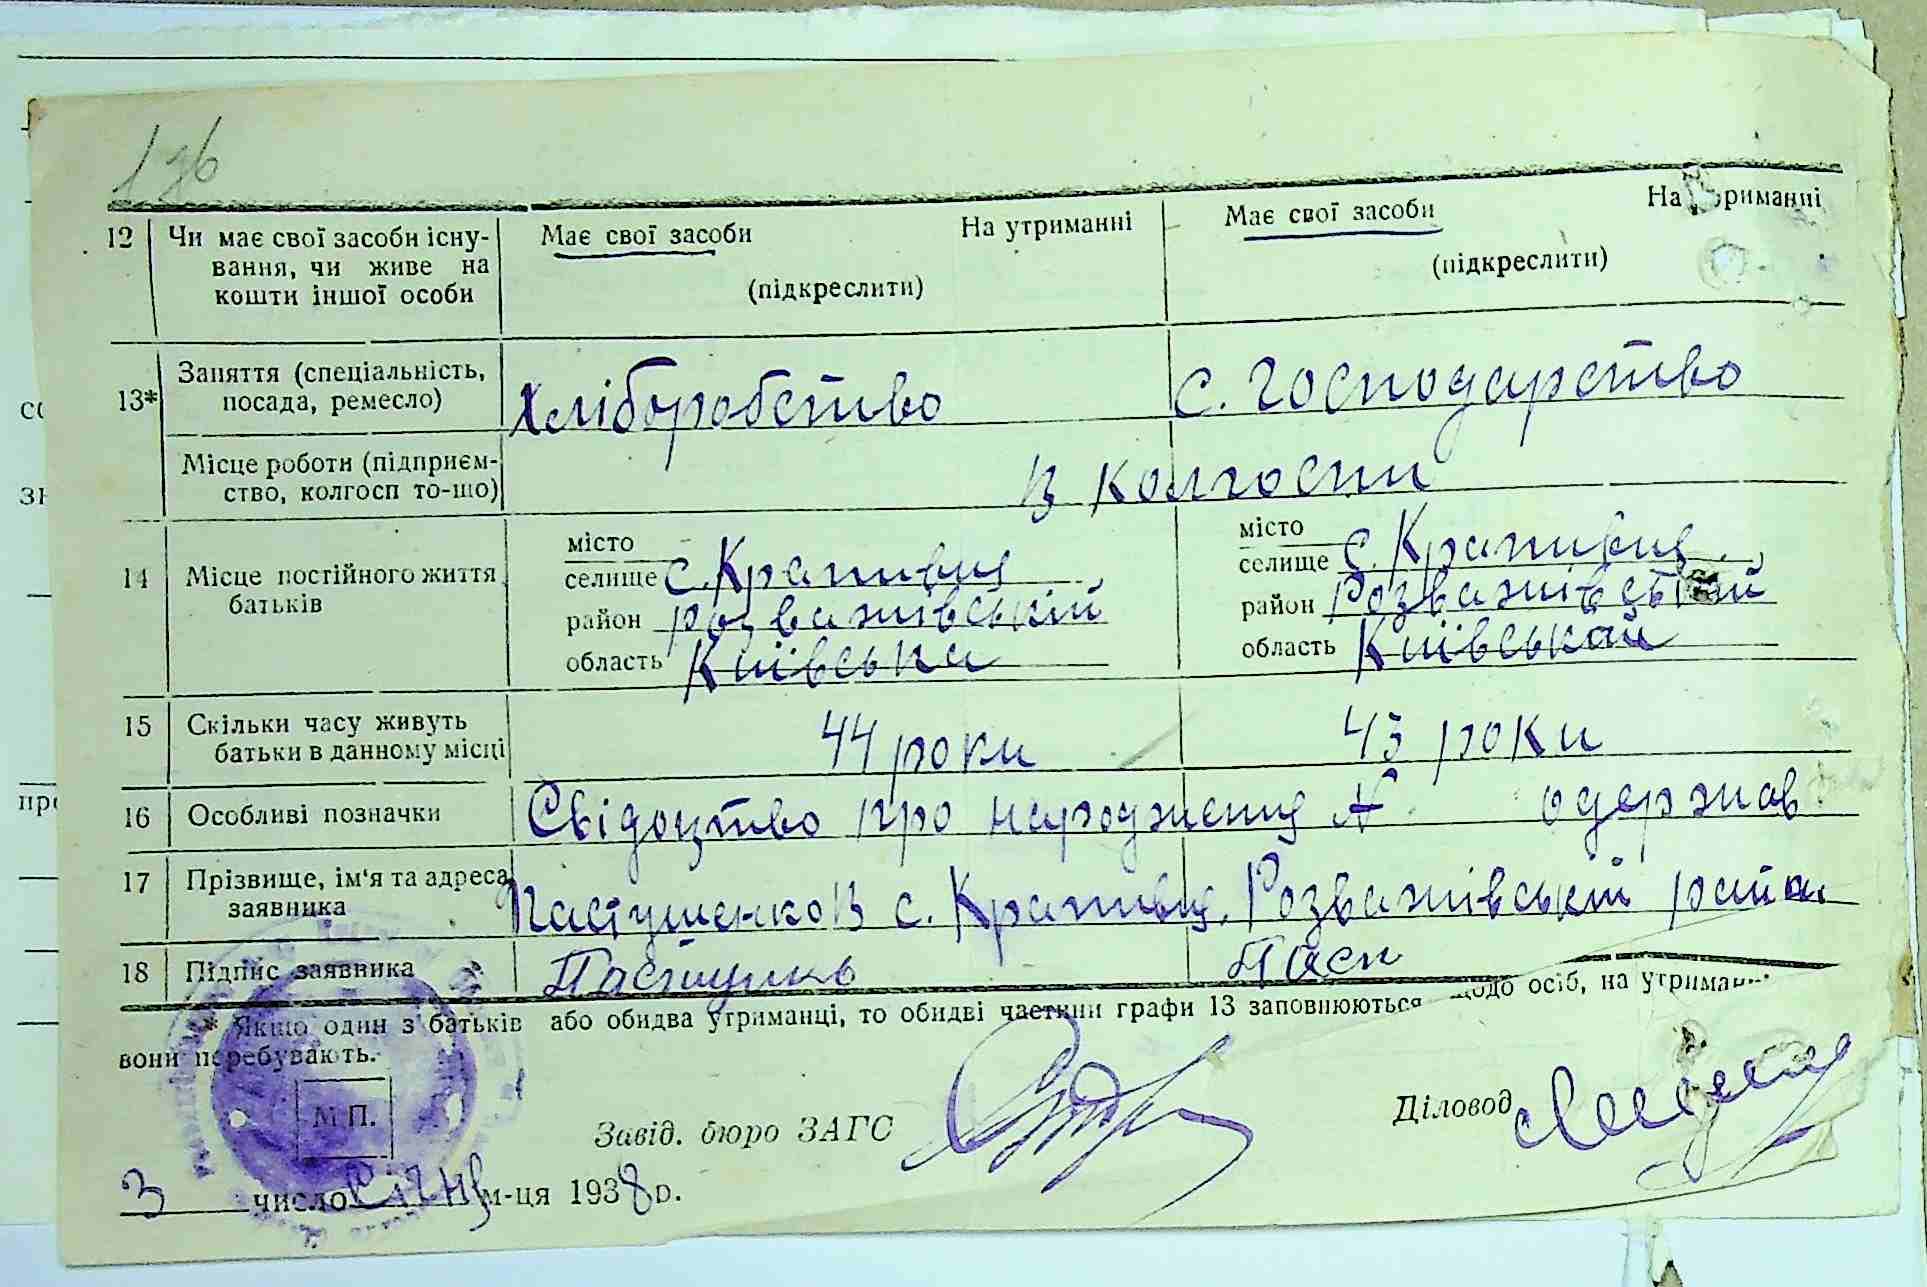 136
12 Чи має свої засоби існу- Має свої засоби На утриманні Має свої засоби На утриманні
вання, чи живе на
кошти іншої особи (підкреслити) (підкреслити)
13* Заняття (спеціальність, Хліборобство с. господарство
посада, ремесло)
Місце роботи (підприєм- В колгоспи
ство, колгосп то-що)
місто місто
14 Місце постійного життя селище с. Крапивня селище с. Крапивня
батьків район розважівській район Розважівський
область Київська область Київської
15 Скільки часу живуть 44 роки 43 роки
батьки в данному місці
16 Особливі позначки Свідоцтво про народження № одержав
17 Прізвище, ім'я та адреса Пастушенко В с. Крапивня Розважівській район
заявника
18 Підпис заявника
* Якщо один з батьків або обидва утриманці, то обидві частини графи 13 заповнюються щодо осіб, на утриман
вони перебувають.
М П.
Завід. бюро ЗАГС Діловод
3 число Січня м-ця 1938 р.